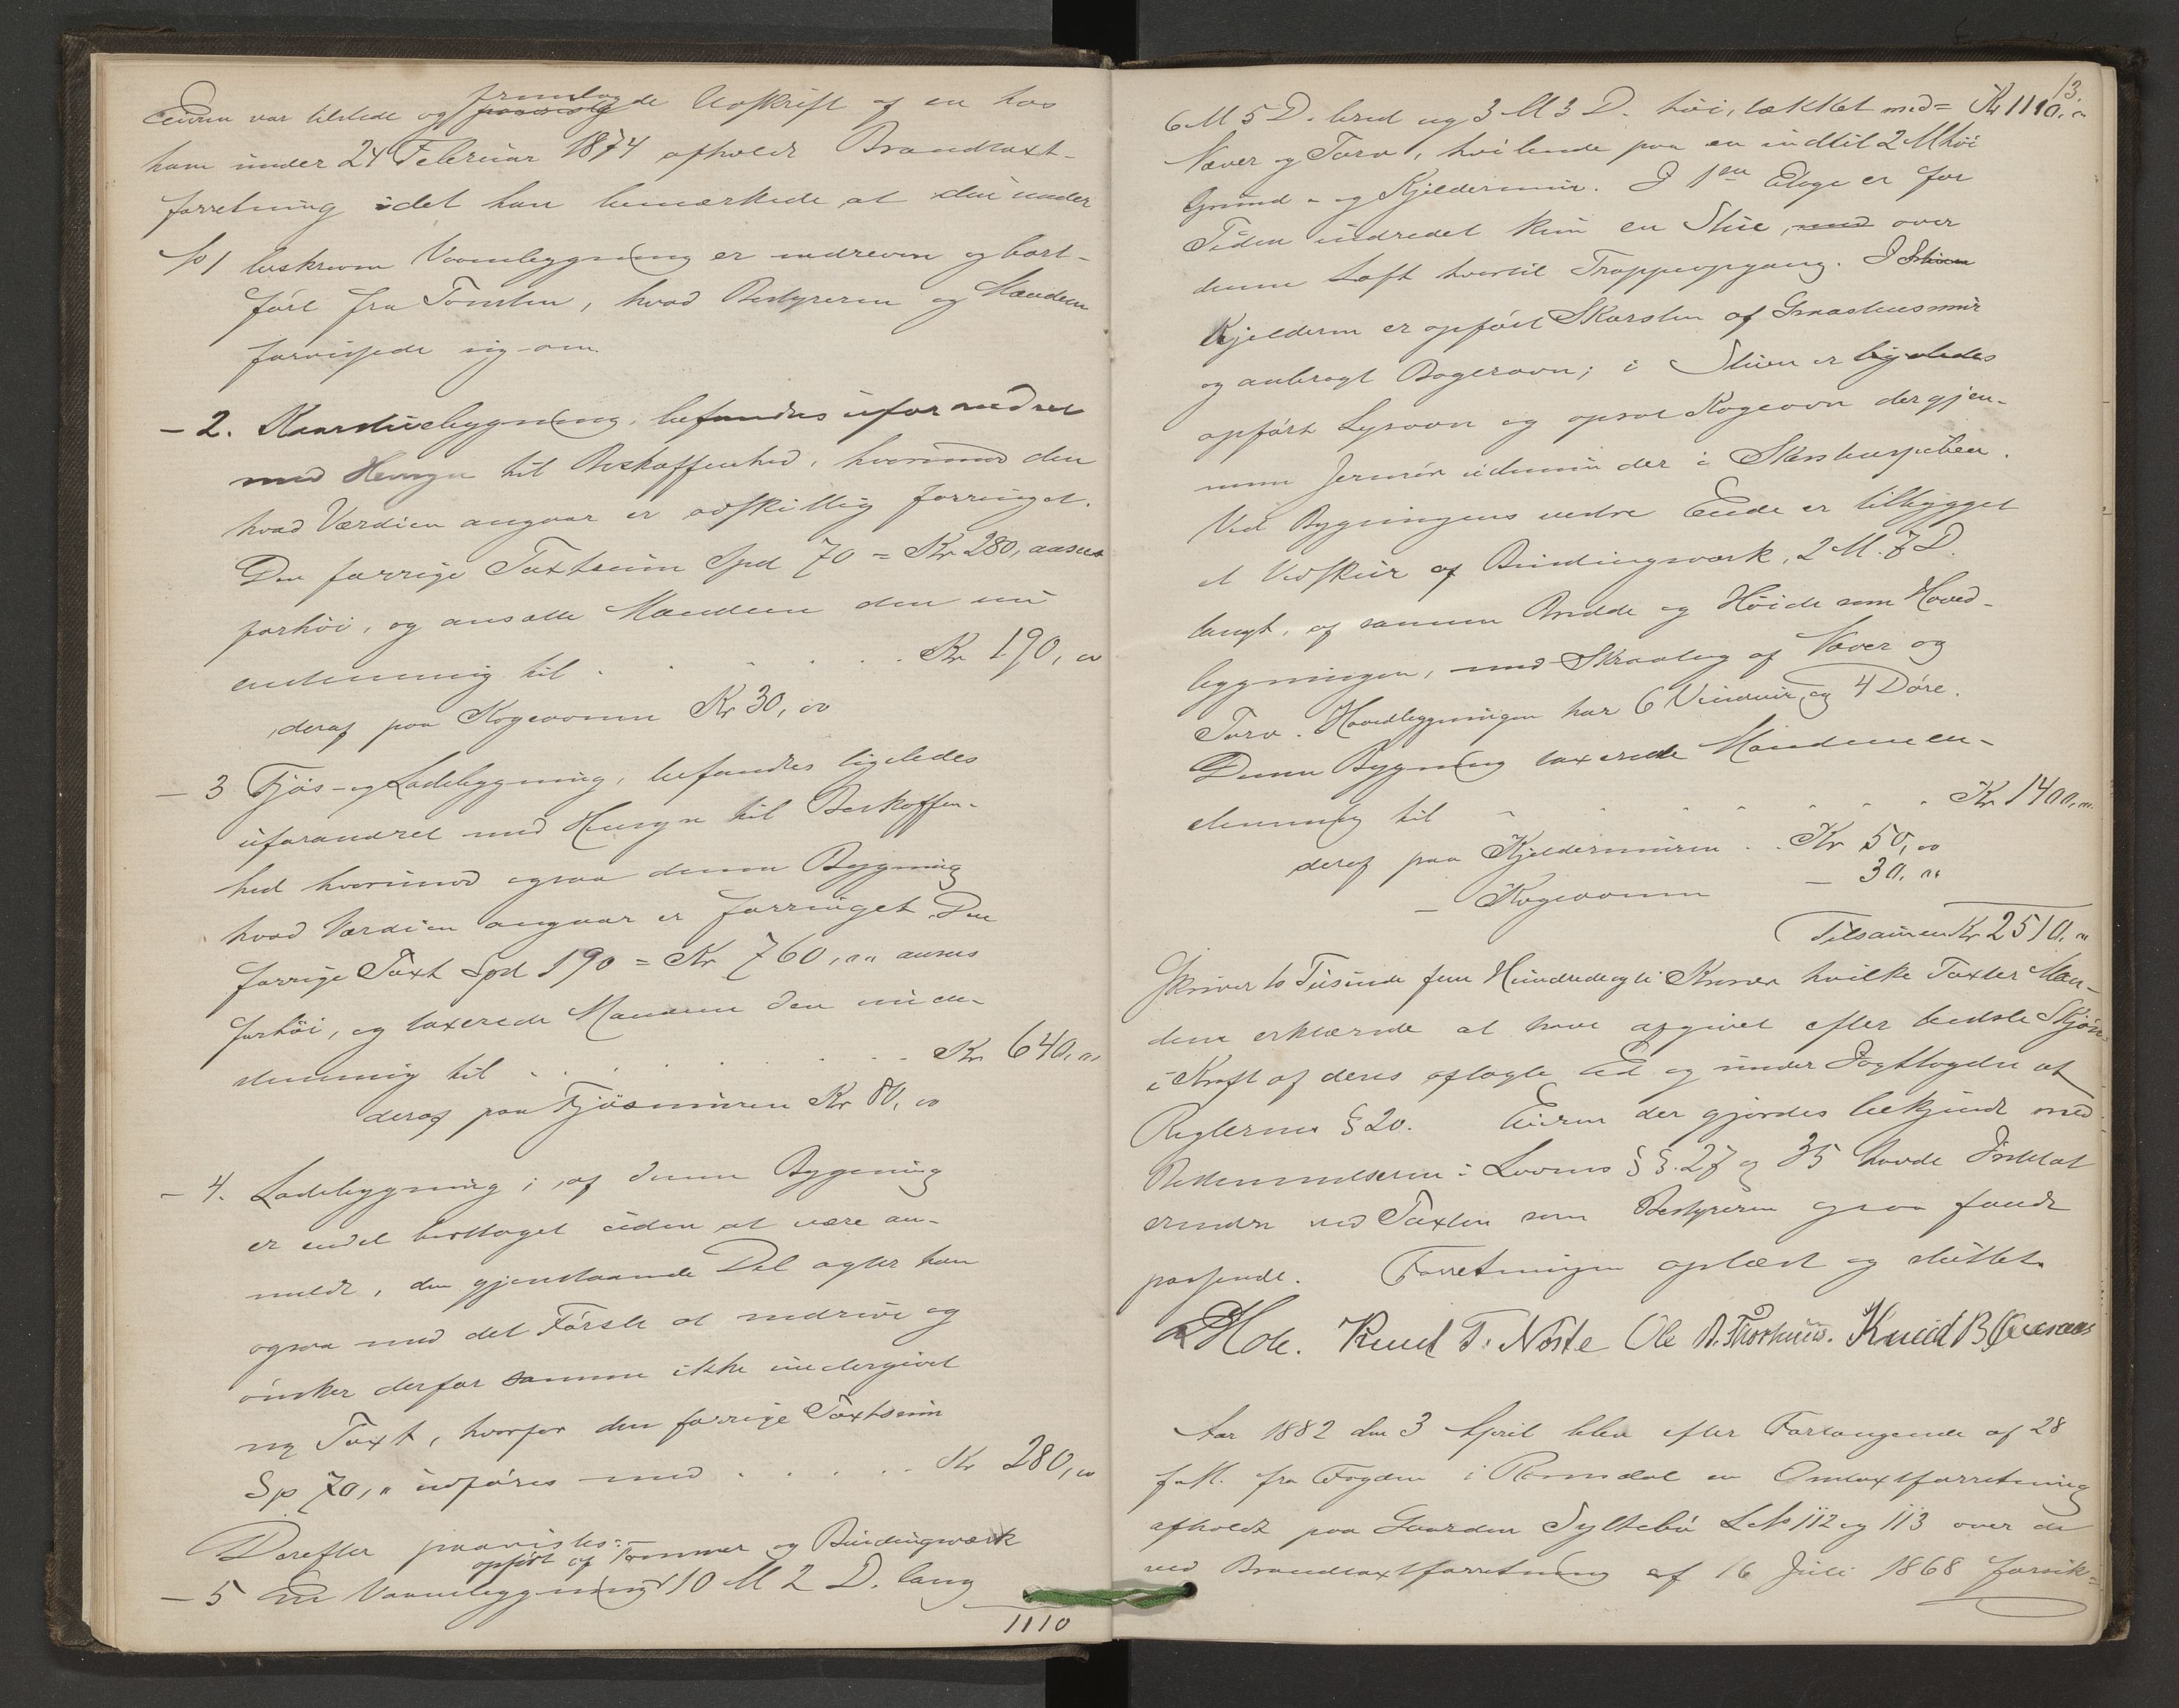 Eieren var tilstede og fremlagde Udskrift af en hos
ham under 24 Februar 1874 afholdt Brandtaxt-
forretning idet han bemærkede at den under
№ 1 beskrevne Vaaningsbygning er nedreven og bort-
ført fra Tomten, hvad Bestyreren og Mændene
forvissede sig om.
– 2. Kaarstuebygning, befandtes uforandret
med Hensyn til Beskaffenhed, hvorimod den
hvad Værdien angaar er adskillig forringet.
Den forrige Taxtsum Spd 70 = Kr 280, ansees
forhøi, og ansatte Mændene den nu
enstemmig til . . . . . . Kr 190,00
deraf paa Kogeovnen Kr 30,00
– 3 Fjøs- og Ladebygning, befandtes ligeledes
uforandret med Hensyn til Beskaffen-
hed hvorimod ogsaa denne Bygning
hvad Værdien angaar er forringet. Den
forrige Taxt Spd 190 = Kr 760,00 ansees
forhøi, og taxerede Mændene den nu en-
stemmig til . . . . . . Kr 640,00
deraf paa Fjøsmuren Kr 80,00
– 4. Ladebygning; af denne Bygning
er endel borttaget uden at være an-
meldt, den gjenstaaende Del agter han
ogsaa med det Første at nedrive og
ønsker derfor samme ikke undergivet
ny Taxt, hvorfor den forrige Taxtsum
Sp 70,„ udføres med . . . . . Kr 280,00
Derefter paavistes:
opført af Tømmer og Bindingsværk
– 5 En Vaaningsbygning 10 M 2 D. lang
1110
13.
6 M 5 D. bred og 3 M 3 D. høi, tækket med = Kr 1110,„
Næver og Torv, hvilende paa en indtil 2 M høi
Grund- og Kjeldermur. I 1en Etage er for
Tiden indredet kun en Stue, med over
denne Loft hvortil Trappeopgang. I Stuen
Kjelderen er opført Skorsten af Graastensmur
og anbragt Bagerovn; i Stuen er ligeledes
opført Lysovn og opsat Kogeovn der gjen-
nem Jernrør udmunder i Skorstenspiben.
Ved Bygningens nedre Ende er tilbygget
et Vedskur af Bindingsværk, 2 M. 7 D.
langt, af samme Bredde og Høide som Hoved-
bygningen, med Skraatag af Næver og
Torv. Hovedbygningen har 6 Vinduer og 4 Døre.
Denne Bygning taxerede Mændene en-
stemmig til . . . . . . . Kr 1400,00
deraf paa Kjeldermuren . . Kr 50,00
– Kogeovnen – 30,00
Tilsammen Kr 2510,00
Skriver to Tusinde fem Hundrede og ti Kroner hvilke Taxter Mæn-
dene erklærede at have afgivet efter bedste Skjøn
i Kraft af deres aflagte Ed og under Iagttagelse af
Reglerne § 20. Eieren der gjordes bekjendt med
Bestemmelserne i Lovens §§. 27 og 35 havde Intet at
erindre ved Taxten som Bestyreren ogsaa fandt
passende. Forretningen oplæst og sluttet.
Hole. Knud T. Nøste Ole A. Thorhuus. Knud B
Aar 1882 den 3 April blev efter Forlangende af 28
f. M. fra Fogden i Romsdal en Omtaxtforretning
afholdt paa Gaarden Syltebø L № 112 og 113 over de
ved Brandtaxtforretning af 16 Juli 1868 forsik-